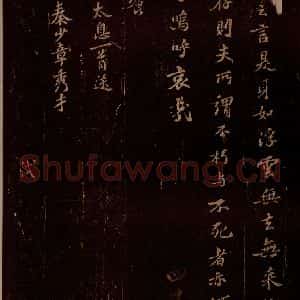 之言是身如浮雲無去無來
存則夫所謂不朽與不死者亦
嗚呼哀哉
太息一首送
秦少章秀才
Shufawang.cn